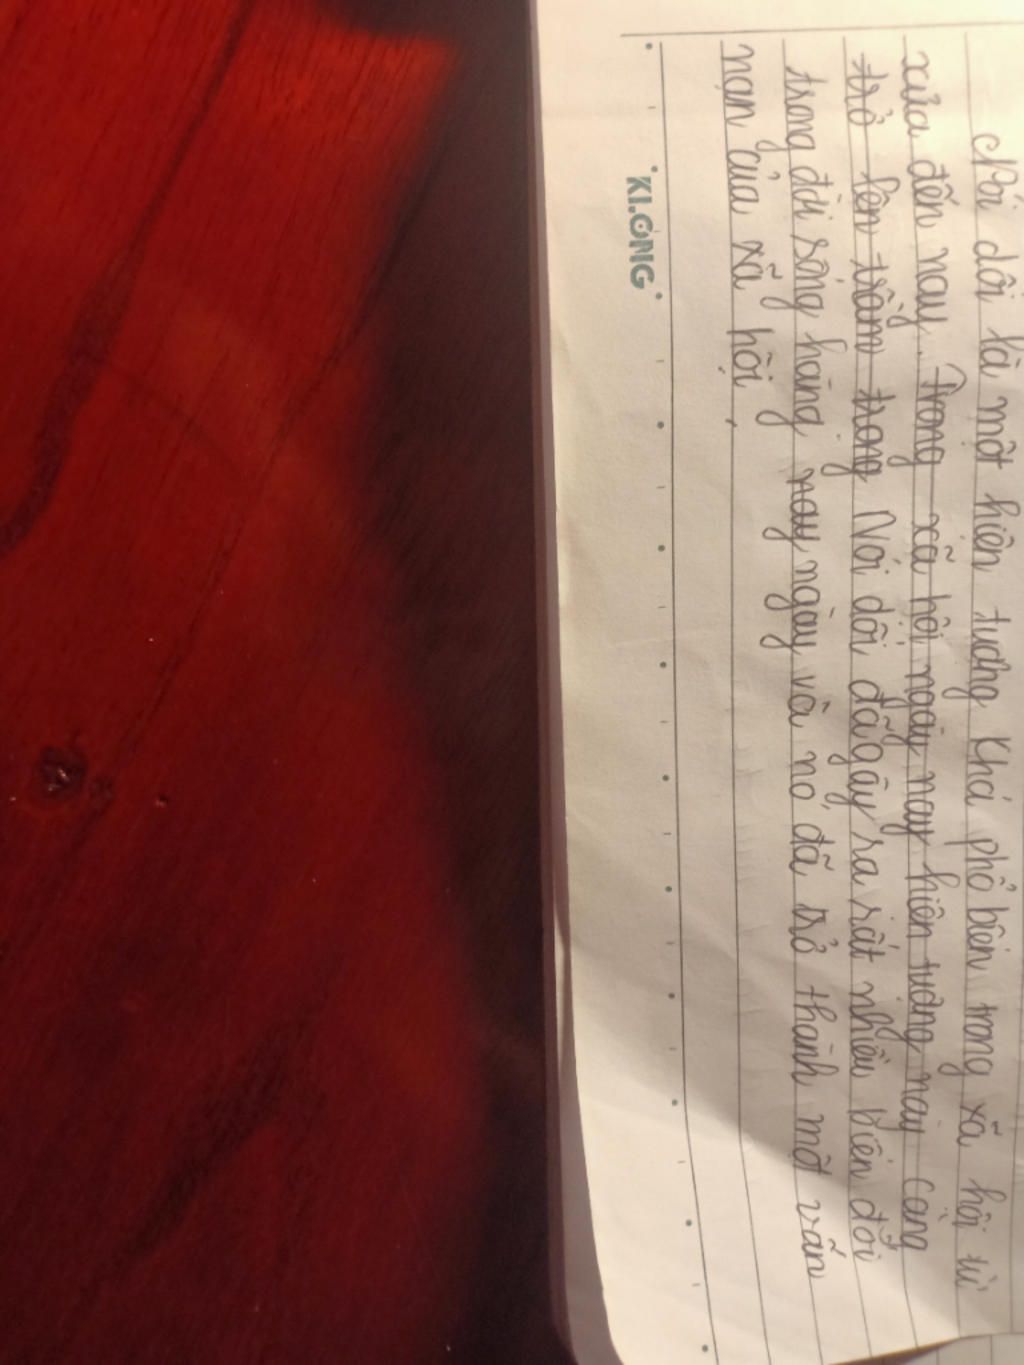 Nói dối là một hiện tượng khá phổ biến trong xã hội từ
xưa đến nay. Trong xã hội ngày nay hiện tượng này càng
trở lên trầm trọng Nói dối đã gây ra rất nhiều biến đổi
trong đời sống hàng nay ngày và nó đã trở thành một vấn
nạn của xã hội,
KLONG